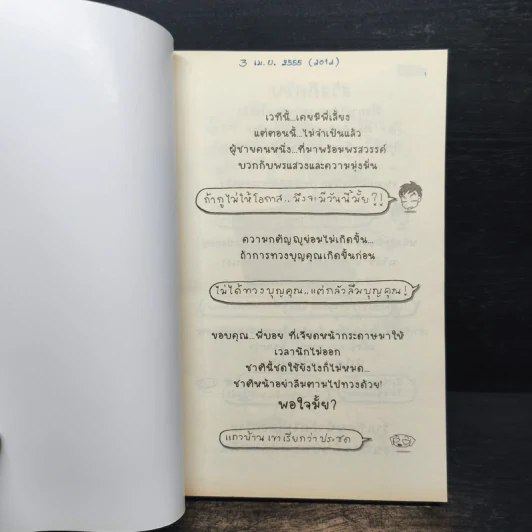 3 เม.ย. 2555 (2012)
เวทีนี้...เคยมีพี่เลี้ยง
แต่ตอนนี้...ไม่จำเป็นแล้ว
ผู้ชายคนหนึ่ง...ที่มาพร้อมพรสวรรค์
บวกกับพรแสวงและความมุ่งมั่น
ถ้ากูไม่ให้โอกาส..มึงจะมีวันนี้มั้ย?!
ความกตัญญูย่อมไม่เกิดขึ้น...
ถ้าการทวงบุญคุณเกิดขึ้นก่อน
ไม่ได้ทวงบุญคุณ..แต่กลัวลืมบุญคุณ!
ขอบคุณ...พี่บอย ที่เจียดหน้ากระดาษมาให้
เวลานึกไม่ออก
ชาตินี้ชดใช้ยังไงก็ไม่หมด...
ชาติหน้าอย่าลืมตามไปทวงด้วย!
พอใจมั้ย?
แถวบ้าน เขาเรียกว่า ประชด